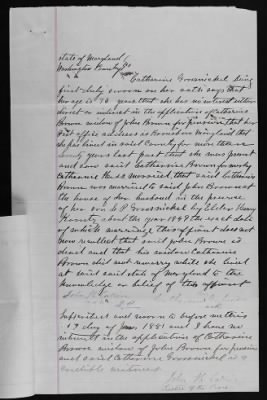 State of Maryland
Washington County SS
Catharine Grossnickel being
first duly sworn on her oath says that
her age is 70 years that she has no interest either
direct or indirect in the application of Catharine
Browne widow of John Browne for pension that her
Post office address is Maryland that
she has lived in said County for more than
years last past that she was present
and saw said Catharine Browne formerly
Catharine married, that said Catharine
Browne was married to said John Browne at
the house of her husband in the presence
of her son & P. Grossnickel by Elder Henry
about the year 1847 the exact date
of which marriage this affiant does not
now recollect that said John Browne is
dead and that his widow Catharine
Browne did not remarry while she lived
at said State of Maryland to the
knowledge or belief of this affiant
Subscribed and sworn to before me this
13 day of 1881 and I have no
interest in the application of Catharine
Browne widow of John Browne for pension
and said Catharine Grossnickel is a
credible witness
John
of the Peace